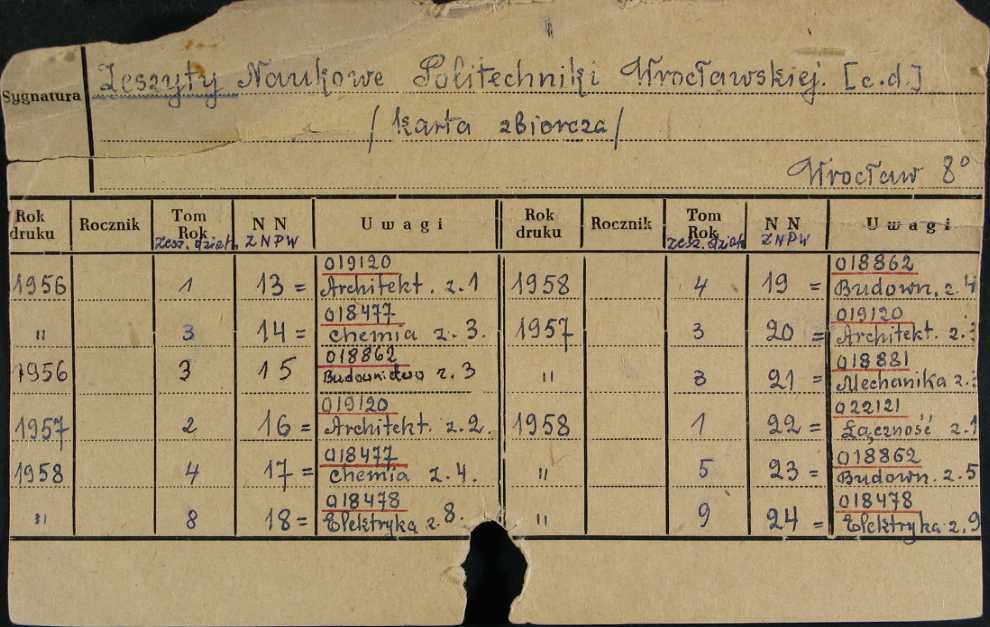 Sygnatura
Zeszyty Naukowe Politechniki Wrocławskiej. [c.d.]
/karta zbiorcza/
Wrocław 8°
Rok druku Rocznik Tom Rok Zesz. dział. N N ZNPW Uwagi Rok druku Rocznik Tom Rok Zesz. dział. N N ZNPW Uwagi
019120 018862
1956 1 13 = Architekt. z. 1 1958 4 19 = Budown. z. 4
018477 019120
" 3 14 = Chemia z. 3. 1957 3 20 = Architekt. z. 3
018862 018881
1956 3 15 Budownictwo z. 3 " 3 21 = Mechanika z.
019120 022121
1957 2 16 = Architekt. z. 2. 1958 1 22 = Łączność z. 1
018477 018862
1958 4 17 = Chemia z. 4. " 5 23 = Budown. z. 5
018478 018478
" 8 18 = Elektryka z. 8. " 9 24 = Elektryka z. 9